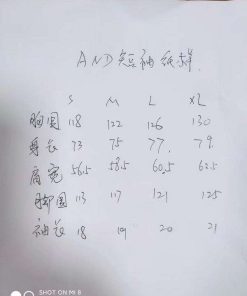 AND短袖纸样
S M L XL
胸围 118 122 126 130
身长 73 75 77. 79
肩宽 56.5 58.5 60.5 62.5
脚围 113 117 121 125
袖长 18 19 20 21
SHOT ON MI 8